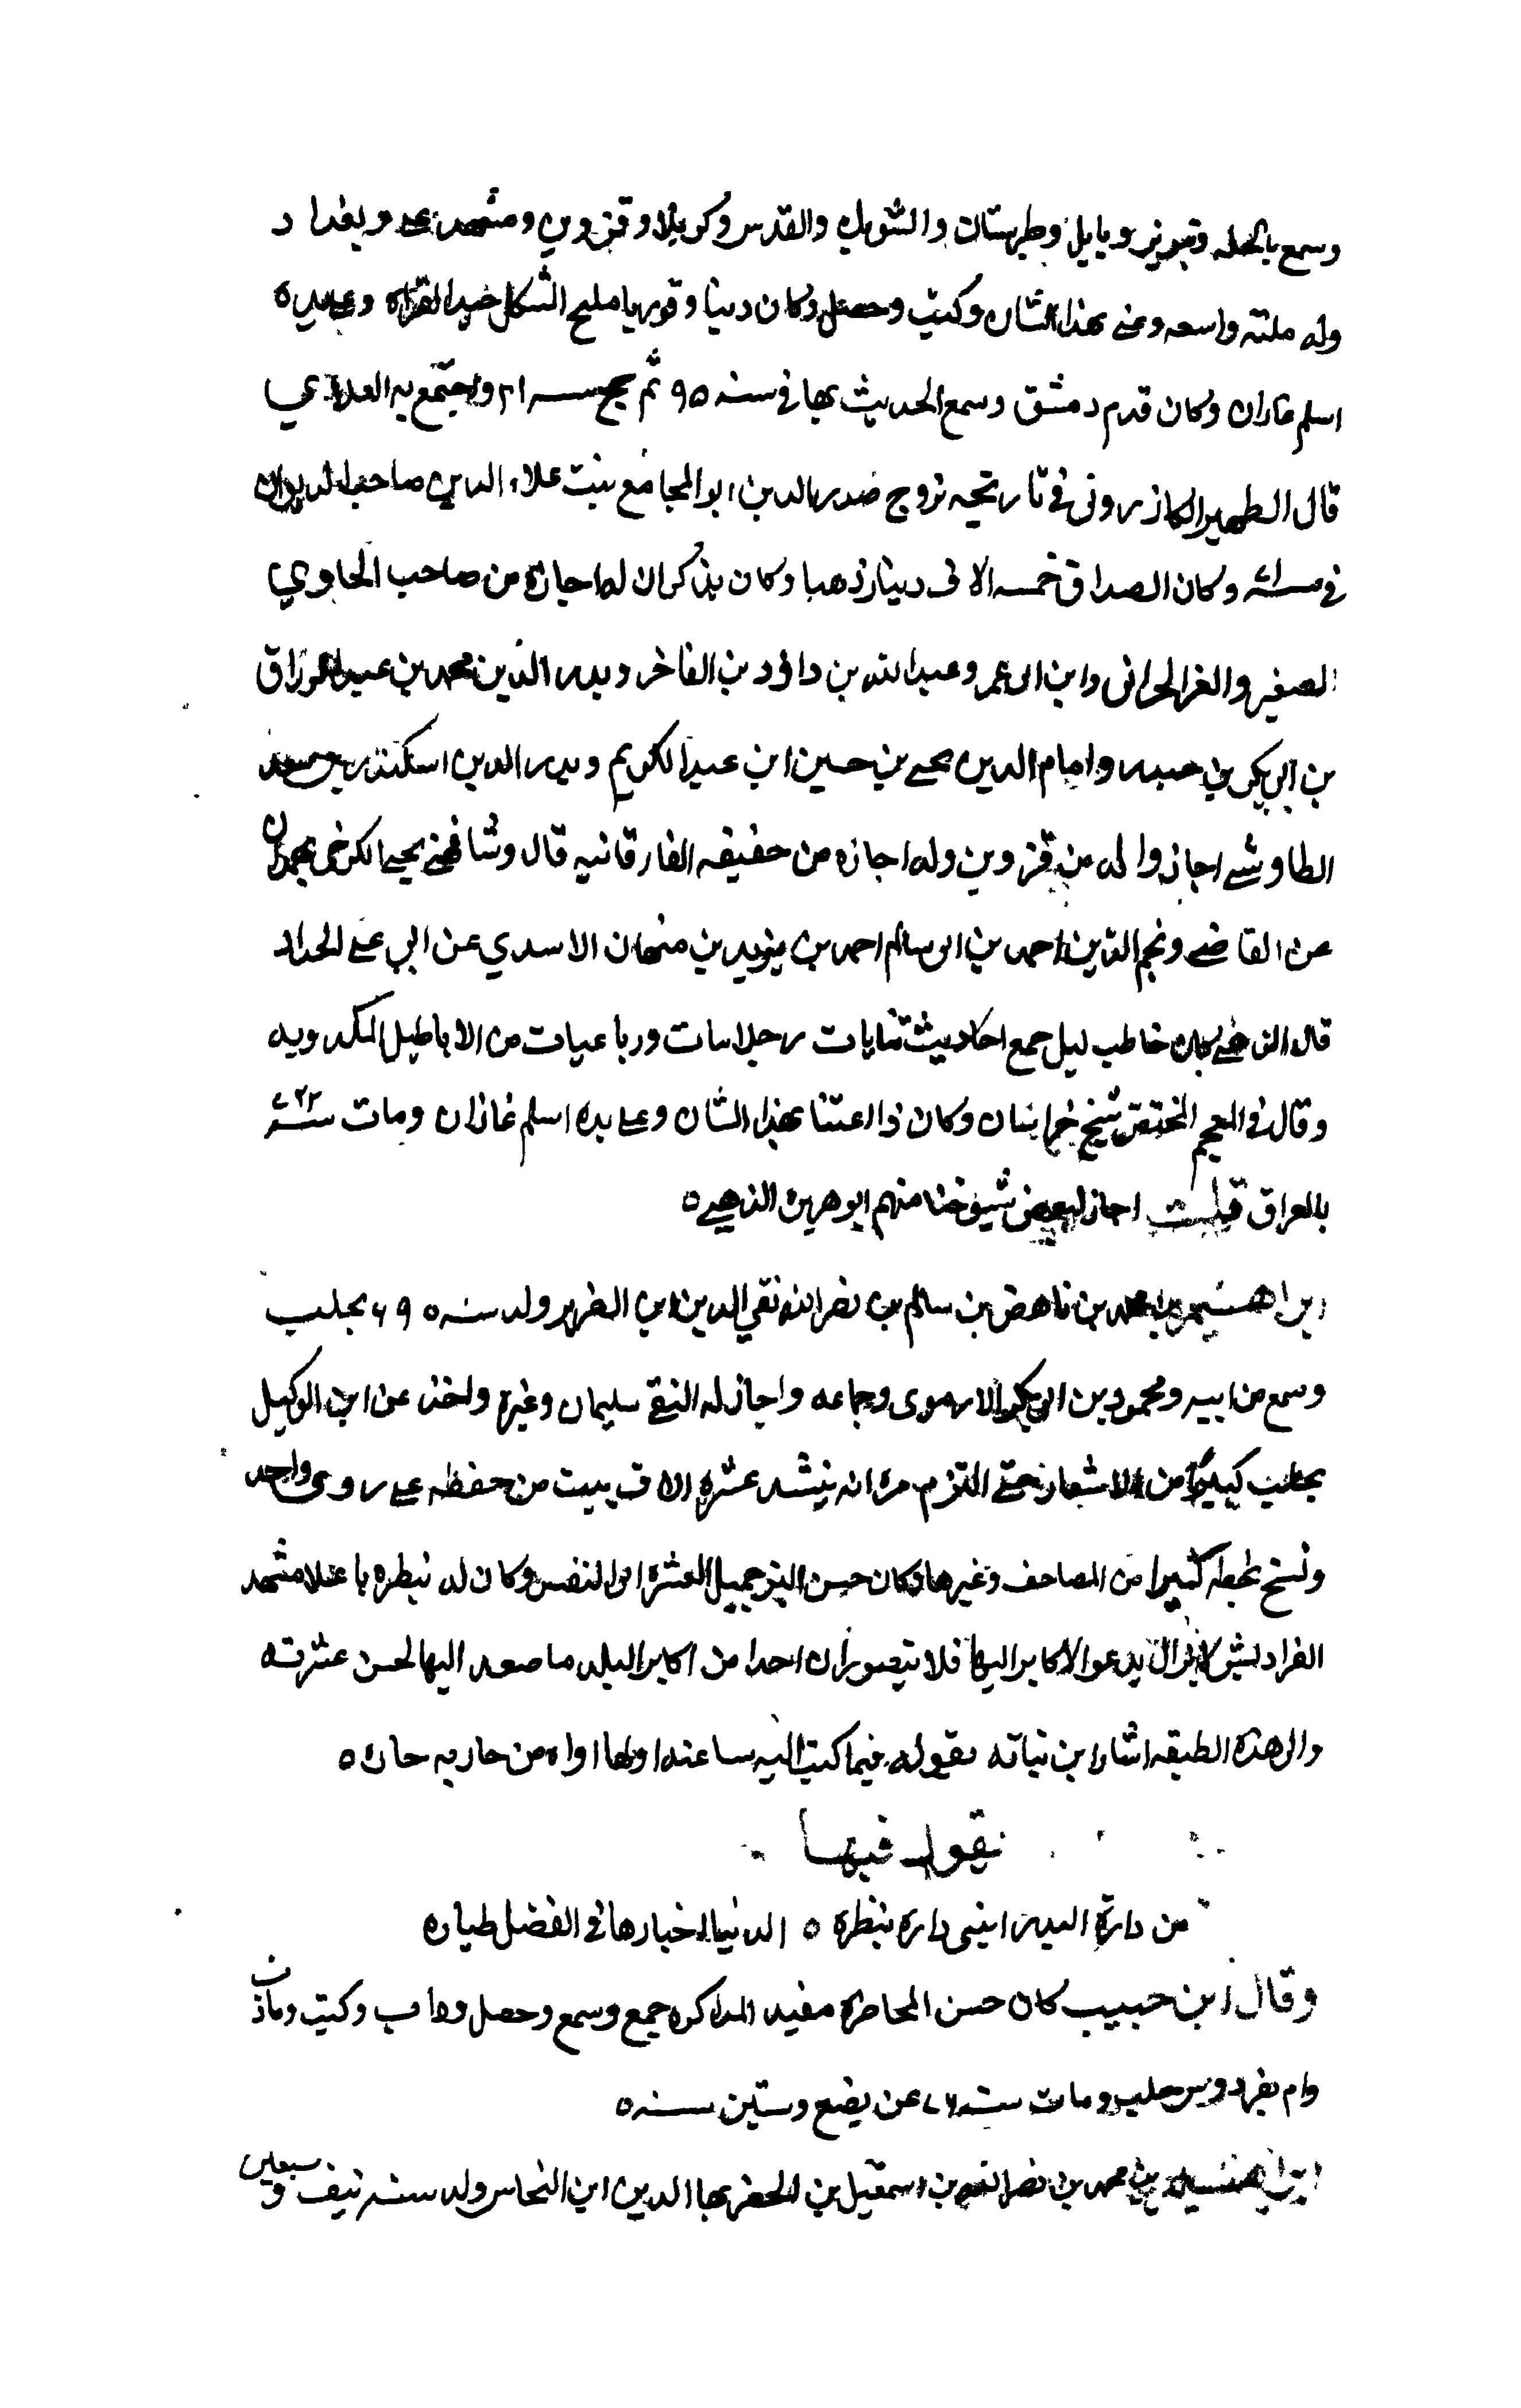 وسمع بالحله وتبريز وبابل وطبرستان والشوبك والقدس وكربلا وقزوين ومشهد على وبغداد
وله واسعه وعنى بهذا الشان وكتب وحصل وكان دينا وقورا مليح الشكل جيد القراه وعلى يده
اسلم غازان وكان قدم دمشق وسمع الحديث بها في سنه ٩٥ ثم حج واجتمع به العلاي
قال الظهير الكازرونى في تاريخه تزوج صدر الدين ابو المجامع بنت علاء الدين صاحب الديوان
في وكان الصداق خمسه الاف دينار ذهبا وكان يذكر ان له اجازة من صاحب الحاوي
الصغير والعز الحرانى وابن ابى عمر وعبد الله بن داؤد بن الفاخر وبدر الدين محمد بن عبد الرزاق
بن ابي بكر بن وامام الدين يحيى بن حسين ابن عبد الكريم وبدر الدين اسكندر بن سعد
الطاوسي اجازوا له من قزوين وله اجازه من الفارقانيه قال وشافهني يحيى الكرخى
عن القاضي ونجم الدين احمد بن ابى سالم احمد بن يزيد بن الاسدي عن ابي علي الحداد
قال كان حاطب ليل جمع احاديث ثنايات وثلاثيات ورباعيات من الاباطيل المكذوبه
وقال في المعجم المختص شيخ خراسان وكان ذا اعتنا بهذا الشان وعلى يده اسلم غازان ومات سنة ٧٢٢
بالعراق قلت اجاز لبعض شيوخنا منهم ابو هريره الذهبي ه
ابراهيم بن محمد بن ناهض بن سالم بن نصر الله تقي الدين ابن الضرير ولد سنه ٦٩٥ بحلب
وسمع من ابيه ومحمود بن ابى بكر الارموى وجماعه واجاز له التقي سليمان وغيره واخذ عن ابن الوكيل
بحلب كثيرا من الاشعار حتى التزم مرة انه ينشد عشرة الاف بيت من حفظه على روى واحد
ونسخ بخطه كثيرا من المصاحف وغيرها وكان حسن البزة جميل العشرة ابى النفس وكان له بنطره باعلا مشهد
الفراديس لا يزال يدعو الاكابر اليها فلا يتصور ان احدا من اكابر البلد ما صعد اليها لحسن عشرته
والى هذه الطبقه اشار ابن نباته بقوله فيما كتب اليه
يقول فيها
من دارة البدر ابنى داره بنظرة ه الدنيا اخبارها في الفضل طياره
وقال ابن حبيب كان حسن المحاضرة مفيد المذاكره جمع وسمع وحصل وداب وكتب
وام بفردوس حلب ومات عن بضع وستين سنه ه
ابراهيم بن محمد بن نصر الله بن اسمعيل بن الخضر بها الدين ابن النحاس ولد سنه نيف وسبعين